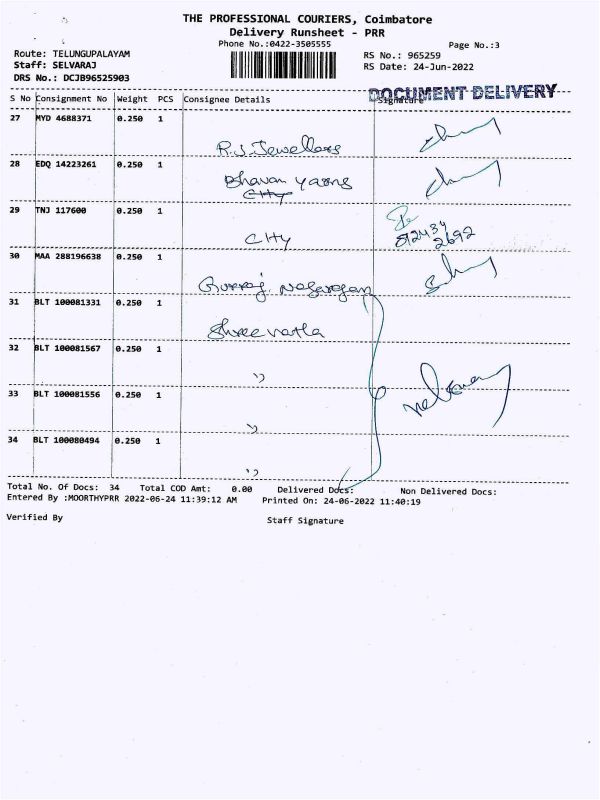 THE PROFESSIONAL COURIERS, Coimbatore
Delivery Runsheet - PRR
Phone No.:0422-3505555
Page No.:3
Route: TELUNGUPALAYAM
RS No.: 965259
Staff: SELVARAJ
RS Date: 24-Jun-2022
DRS No.: DCJB96525903
DOCUMENT DELIVERY
S No Consignment No Weight PCS Consignee Details Signature
27 MYD 4688371 0.250 1
R.S. Jewellers
28 EDQ 14223261 0.250 1
Bhavan yarns
CHy
29 TNJ 117600 0.250 1
CHy
812434
2692
30 MAA 288196638 0.250 1
31 BLT 100081331 0.250 1
32 BLT 100081567 0.250 1
"
33 BLT 100081556 0.250 1
"
34 BLT 100080494 0.250 1
"
Total No. Of Docs: 34 Total COD Amt: 0.00 Delivered Docs: Non Delivered Docs:
Entered By :MOORTHYPRR 2022-06-24 11:39:12 AM Printed On: 24-06-2022 11:40:19
Verified By
Staff Signature